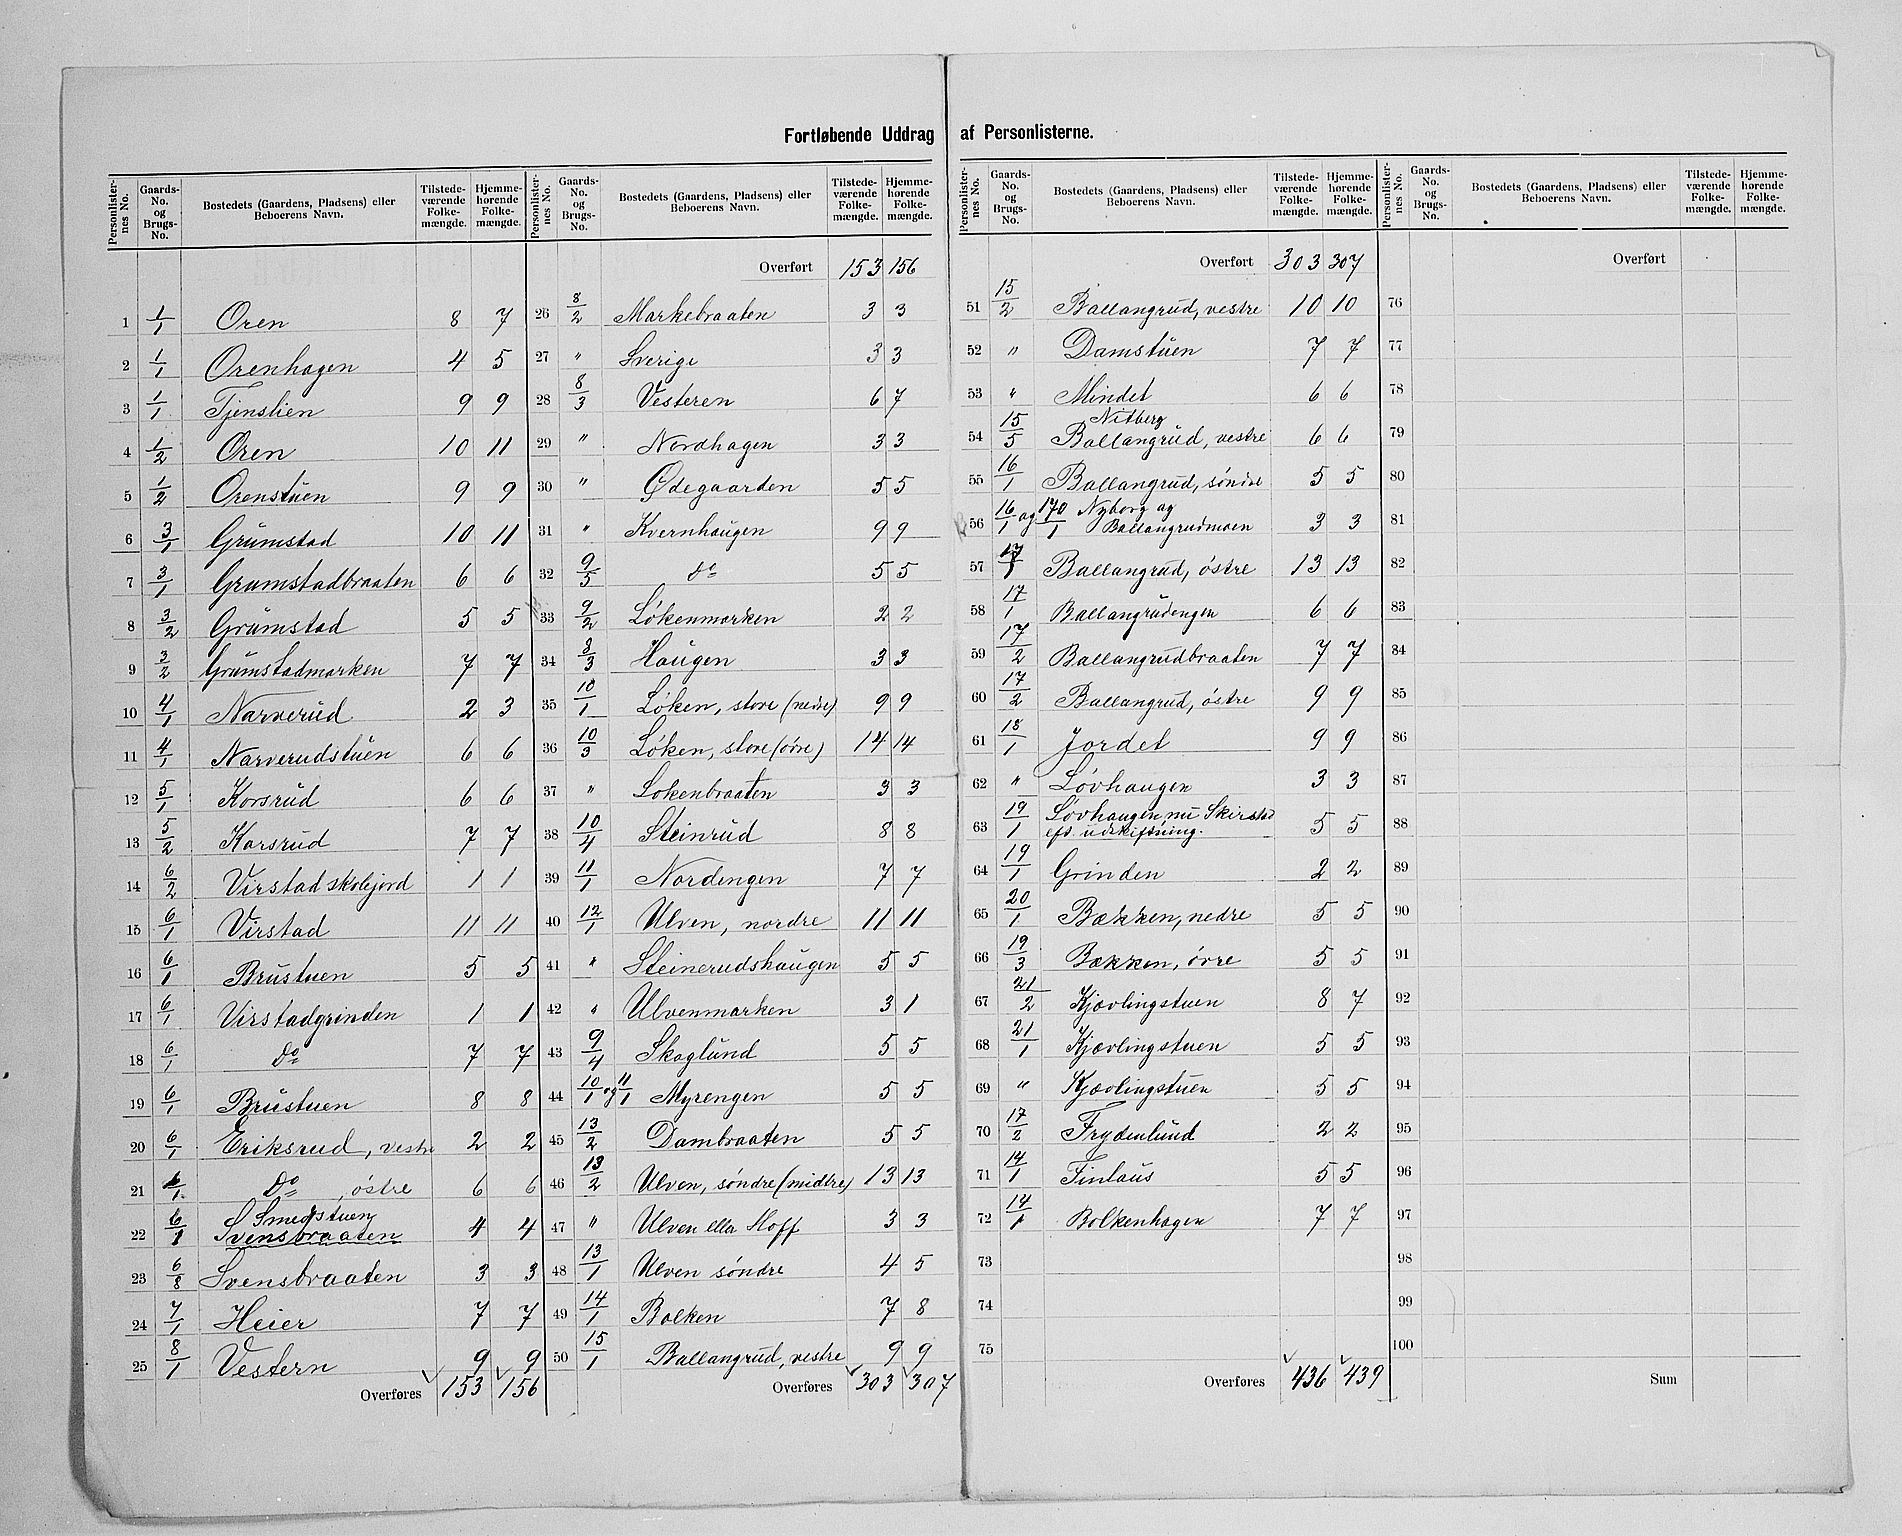 Fortløbende Uddrag af Personlisterne.
Personlisternes No. | Gaards-No. og Brugs-No. | Bostedets (Gaardens, Pladsens) eller Beboerens Navn. | Tilstedeværende Folkemængde. | Hjemmehørende Folkemængde.
1 1/1 Oren 8 7
2 1/1 Orenhagen 4 5
3 1/1 Tjenslien 9 9
4 1/2 Oren 10 11
5 1/2 Orenstuen 9 9
6 3/1 Grümstad 10 11
7 3/1 Grumstadbraaten 6 6
8 3/2 Grümstad 5 5
9 3/2 Grümstadmarken 7 7
10 4/1 Narverüd 2 3
11 4/1 Narverudstüen 6 6
12 5/1 Korsrüd 6 6
13 5/2 Korsrud 7 7
14 6/2 Virstad skolejord 1 1
15 6/1 Virstad 11 11
16 6/1 Brüstuen 5 5
17 6/1 Virstadgrinden 1 1
18 6/1 Do 7 7
19 6/1 Brüstuen 8 8
20 6/1 Eriksrud, vestre 2 2
21 6/1 Do, østre 6 6
22 6/1 Smedstuen Svensbraaten 4 4
23 6/8 Svensbraaten 3 3
24 7/1 Heier 7 7
25 8/1 Vestern 9 9
Overføres 153 156
Personlisternes No. | Gaards-No. og Brugs-No. | Bostedets (Gaardens, Pladsens) eller Beboerens Navn. | Tilstedeværende Folkemængde. | Hjemmehørende Folkemængde.
Overført 153 156
26 8/2 Markebraaten 3 3
27 " Sverige 3 3
28 8/3 Vesteren 6 7
29 " Nordhagen 3 3
30 " Ødegaarden 5 5
31 " Kvernhaugen 9 9
32 9/5 do 5 5
33 9/2 Løkenmarken 2 2
34 8/3 Haügen 3 3
35 10/1 Løken, store (nedre) 9 9
36 10/3 Løken, store (øvre) 14 14
37 " Lokenbraaten 3 3
38 10/4 Steinrüd 8 8
39 11/1 Nordengen 7 7
40 12/1 Ulven, nordre 11 11
41 " Steinerudshaugen 5 5
42 " Ulvenmarken 3 1
43 9/4 Skoglünd 5 5
44 10/1 og 11/1 Myrengen 5 5
45 13/2 Dambraaten 5 5
46 13/2 Ulven, søndre (midtre) 13 13
47 " Ulven eller Hoff 3 3
48 13/1 Ulven søndre 4 5
49 14/1 Bolken 7 8
50 15/1 Ballangrud, vestre 9 9
Overføres 303 307
Personlisternes No. | Gaards-No. og Brugs-No. | Bostedets (Gaardens, Pladsens) eller Beboerens Navn. | Tilstedeværende Folkemængde. | Hjemmehørende Folkemængde.
Overført 303 307
51 15/2 Ballangrud, vestre 10 10
52 " Damstüen 7 7
53 " Mindet 6 6
54 15/5 Nitberg Ballangrüd, vestre 6 6
55 16/1 Ballangrud, søndre 5 5
56 16/1 og 170/1 Nyborg og Ballangrudmoen 3 3
57 17/1 Ballangrud, østre 13 13
58 17/1 Ballangrüdengen 6 6
59 17/2 Ballangrudbraaten 7 7
60 17/2 Ballangrud, østre 9 9
61 18/1 Jordet 9 9
62 " Løvhaugen 3 3
63 19/1 Løvhaugen, nu Skirstad eft. udskiftning. 5 5
64 19/1 Grinden 2 2
65 20/1 Bækken, nedre 5 5
66 19/3 Bækken, øvre 5 5
67 21/2 Kjævlingstuen 8 7
68 21/1 Kjævlingstuen 5 5
69 " Kjævlingstuen 5 5
70 17/2 Frydenlünd 2 2
71 14/1 Finlaüs 5 5
72 14/1 Bolkenhagen 7 7
73
74
75
Overføres 436 439
Personlisternes No. | Gaards-No. og Brugs-No. | Bostedets (Gaardens, Pladsens) eller Beboerens Navn. | Tilstedeværende Folkemængde. | Hjemmehørende Folkemængde.
Overført
76
77
78
79
80
81
82
83
84
85
86
87
88
89
90
91
92
93
94
95
96
97
98
99
100
Sum